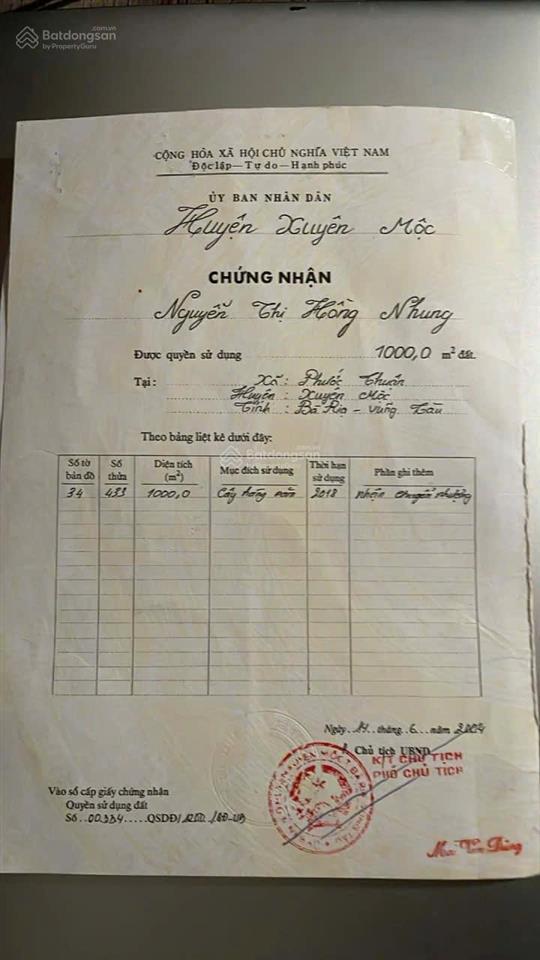 Batdongsan
by PropertyGuru
CỘNG HÒA XÃ HỘI CHỦ NGHĨA VIỆT NAM
Độc lập—Tự do—Hạnh phúc
ỦY BAN NHÂN DÂN
Huyện Xuyên Mộc
CHỨNG NHẬN
Nguyễn Thị Hồng Nhung
Được quyền sử dụng 1000,0 m² đất.
Tại: Xã: Phước Thuận
Huyện: Xuyên Mộc
Tỉnh: Bà Rịa - Vũng Tàu
Theo bảng liệt kê dưới đây:
Số tờ bản đồ Số thửa Diện tích (m²) Mục đích sử dụng Thời hạn sử dụng Phần ghi thêm
34 433 1000,0 Cây hàng năm 2018 Nhận chuyển nhượng
Batdongsan
Ngày 14 tháng 6 năm 2004
Chủ tịch UBND
K/T CHỦ TỊCH
PHÓ CHỦ TỊCH
Vào sổ cấp giấy chứng nhận
Quyền sử dụng đất
Số 00334 QSDĐ/